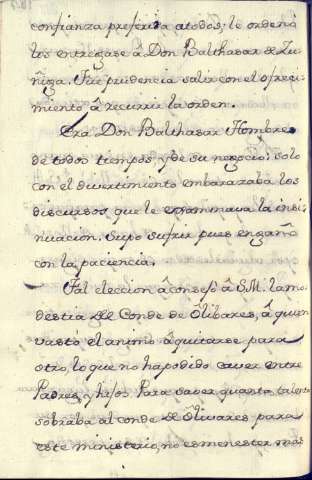 confianza preferia atodos, le ordenò
los entregase à Don Balthasar de Zu
ñiga. Fue prudencia salir con el ofreci
miento â recurrir la orden.
Era Don Balthasar Hombre
de todos tiempos, y de su negocio: solo
con el divertimiento embarazaba los
discursos que le examinava la insi
nuacion, supo sufrir pues engaño
con la paciencia.
Tal eleccion âconsejó â S.M. la mo
destia del Conde de Olibares, â quien
vastó el animo â quitarse para
otro, lo que no ha podido caver entre
Padres, y hijos. Para saver quanto talento
sobraba al conde de Olivares para
este ministerio, no es menester mas